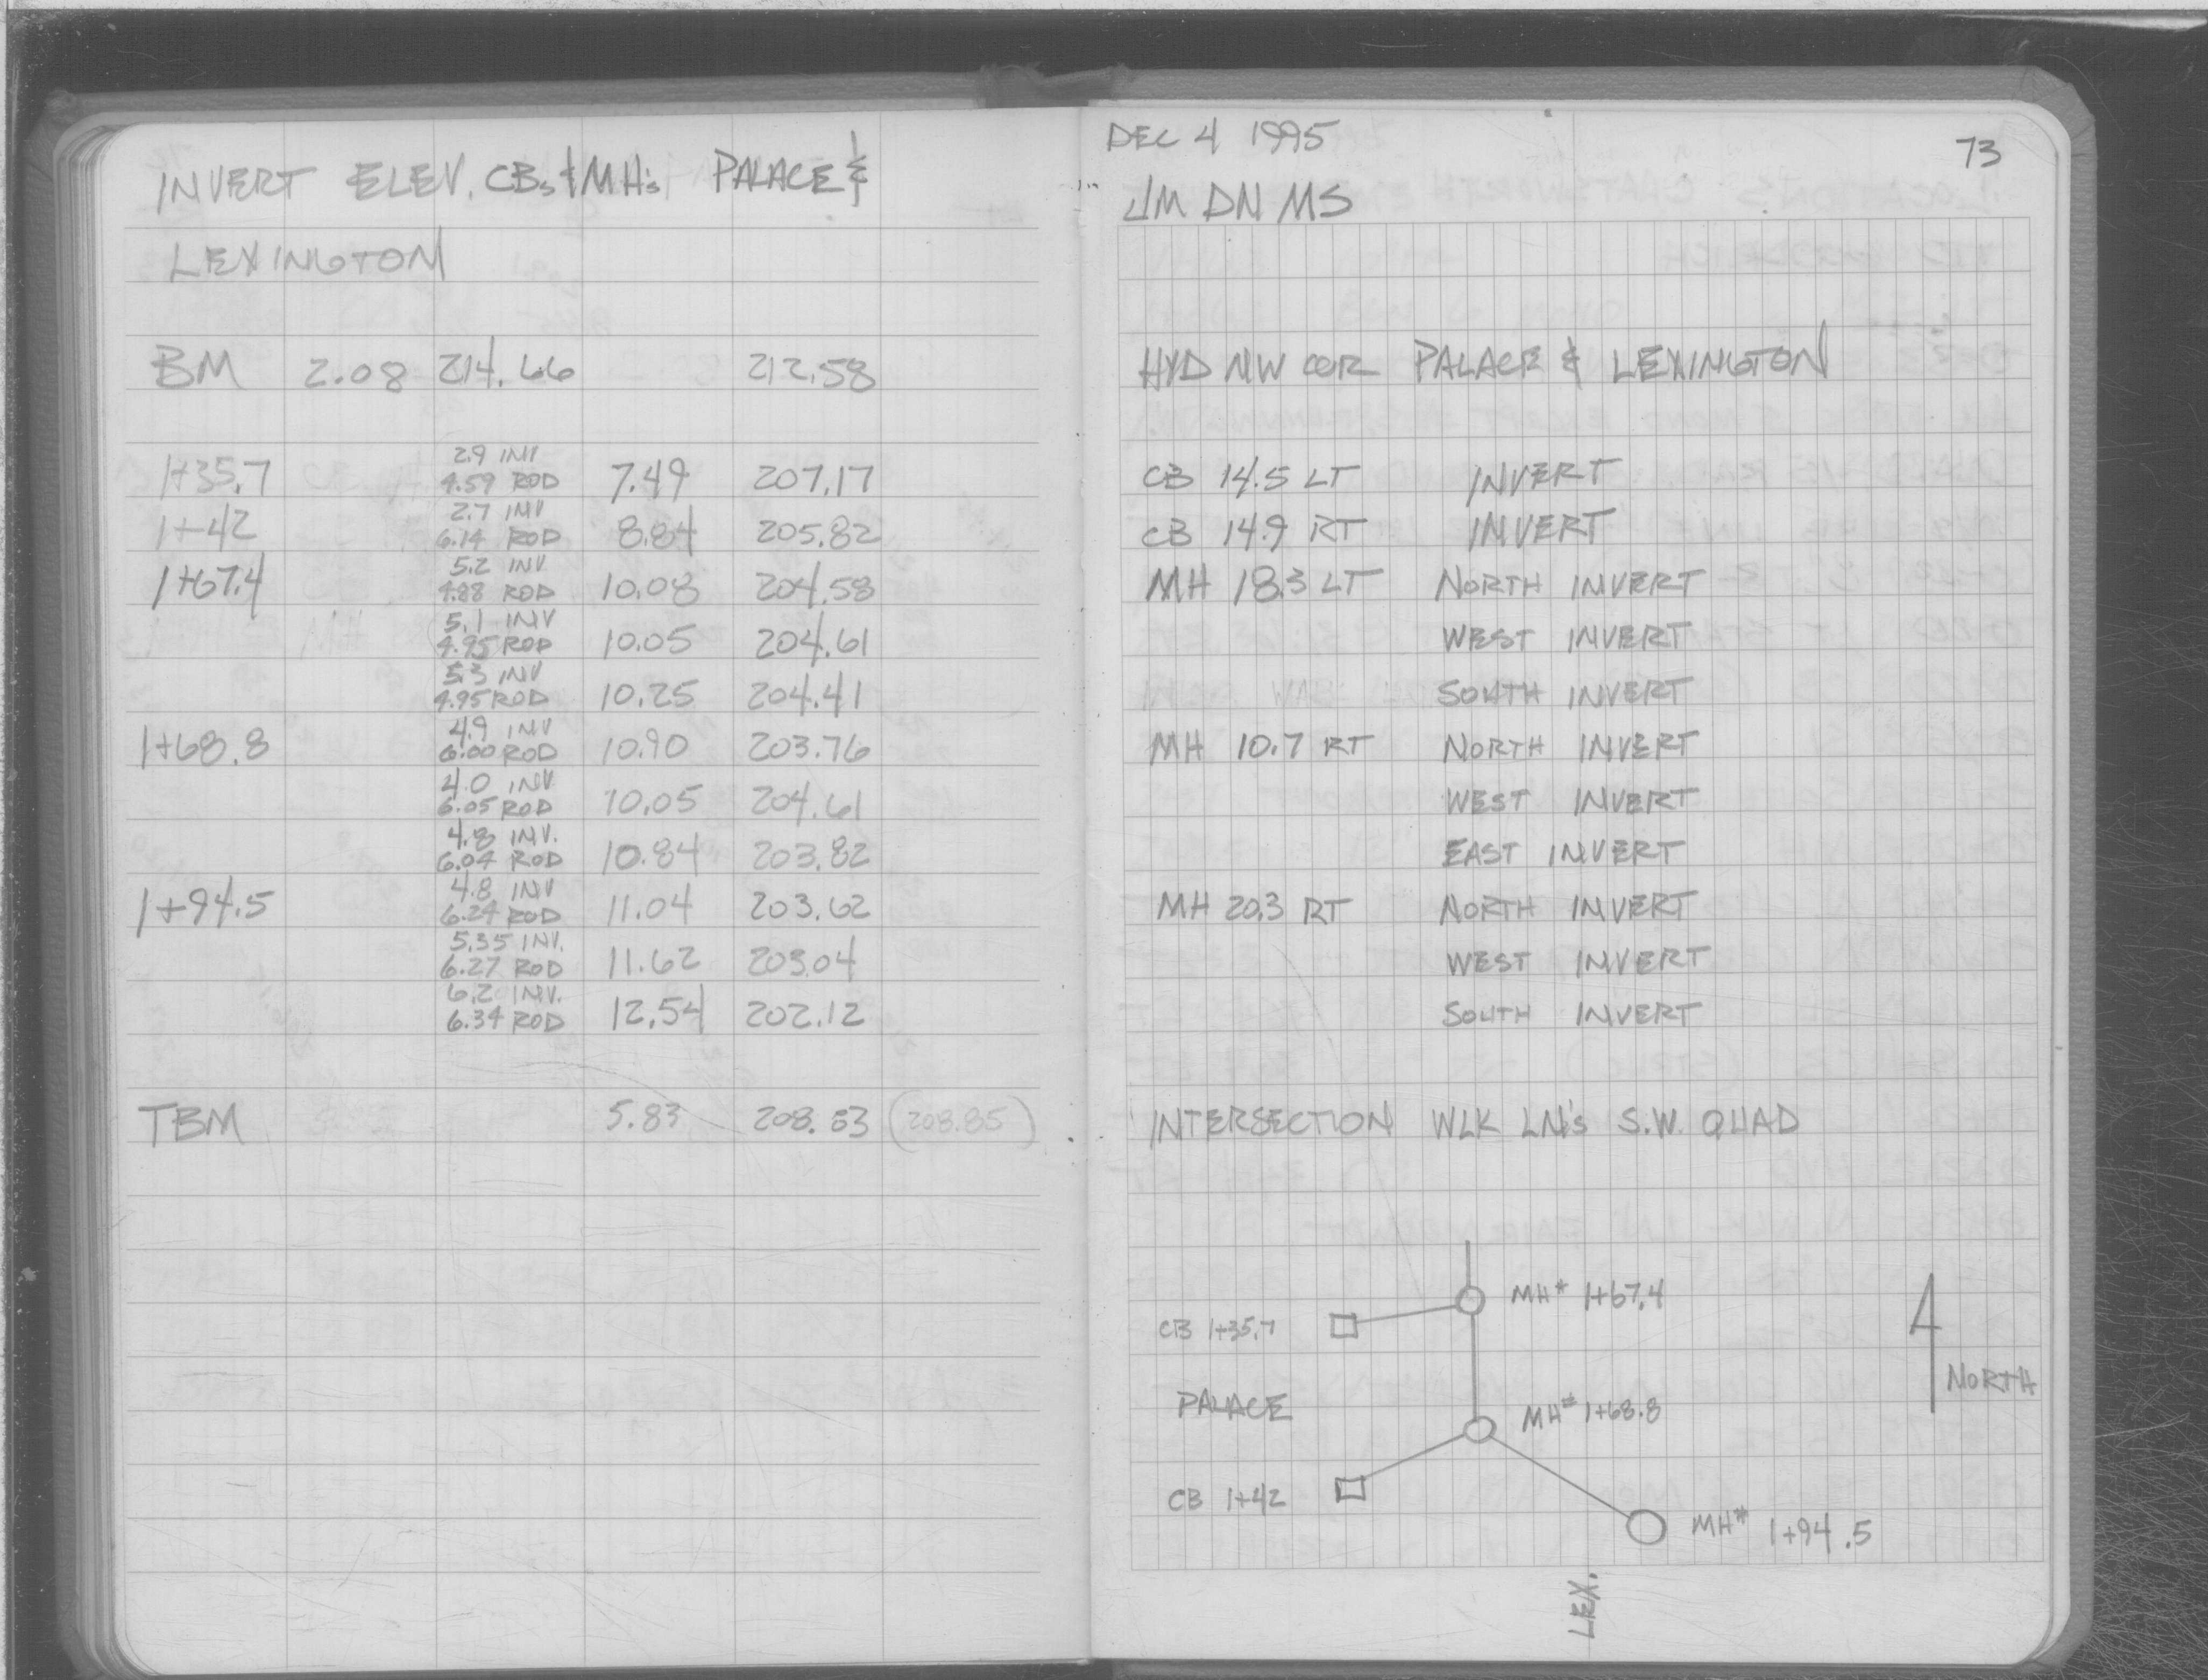 INVERT ELEV. CBs & MH's PALACE &
LEXINGTON
BM 2.08 214.66 212.58
2.9 INV
1+35.7 4.59 ROD 7.49 207.17
2.7 INV
1+42 6.14 ROD 8.84 205.82
5.2 INV
1+67.4 4.88 ROD 10.08 204.58
5.1 INV
4.95 ROD 10.05 204.61
5.3 INV
4.95 ROD 10.25 204.41
4.9 INV
1+68.8 6.00 ROD 10.90 203.76
4.0 INV
6.05 ROD 10.05 204.61
4.8 INV.
6.04 ROD 10.84 203.82
4.8 INV
1+94.5 6.24 ROD 11.04 203.62
5.35 INV.
6.27 ROD 11.62 203.04
6.2 INV.
6.34 ROD 12.54 202.12
TBM 5.83 208.83 (208.85)
DEC 4 1995
73
JM DN MS
HYD NW COR PALACE & LEXINGTON
CB 14.5 LT INVERT
CB 14.9 RT INVERT
MH 18.3 LT NORTH INVERT
WEST INVERT
SOUTH INVERT
MH 10.7 RT NORTH INVERT
WEST INVERT
EAST INVERT
MH 20.3 RT NORTH INVERT
WEST INVERT
SOUTH INVERT
INTERSECTION WLK LN's S.W. QUAD
MH# 1+67.4
CB 1+35.7
NORTH
PALACE
MH# 1+68.8
CB 1+42
MH# 1+94.5
LEX.